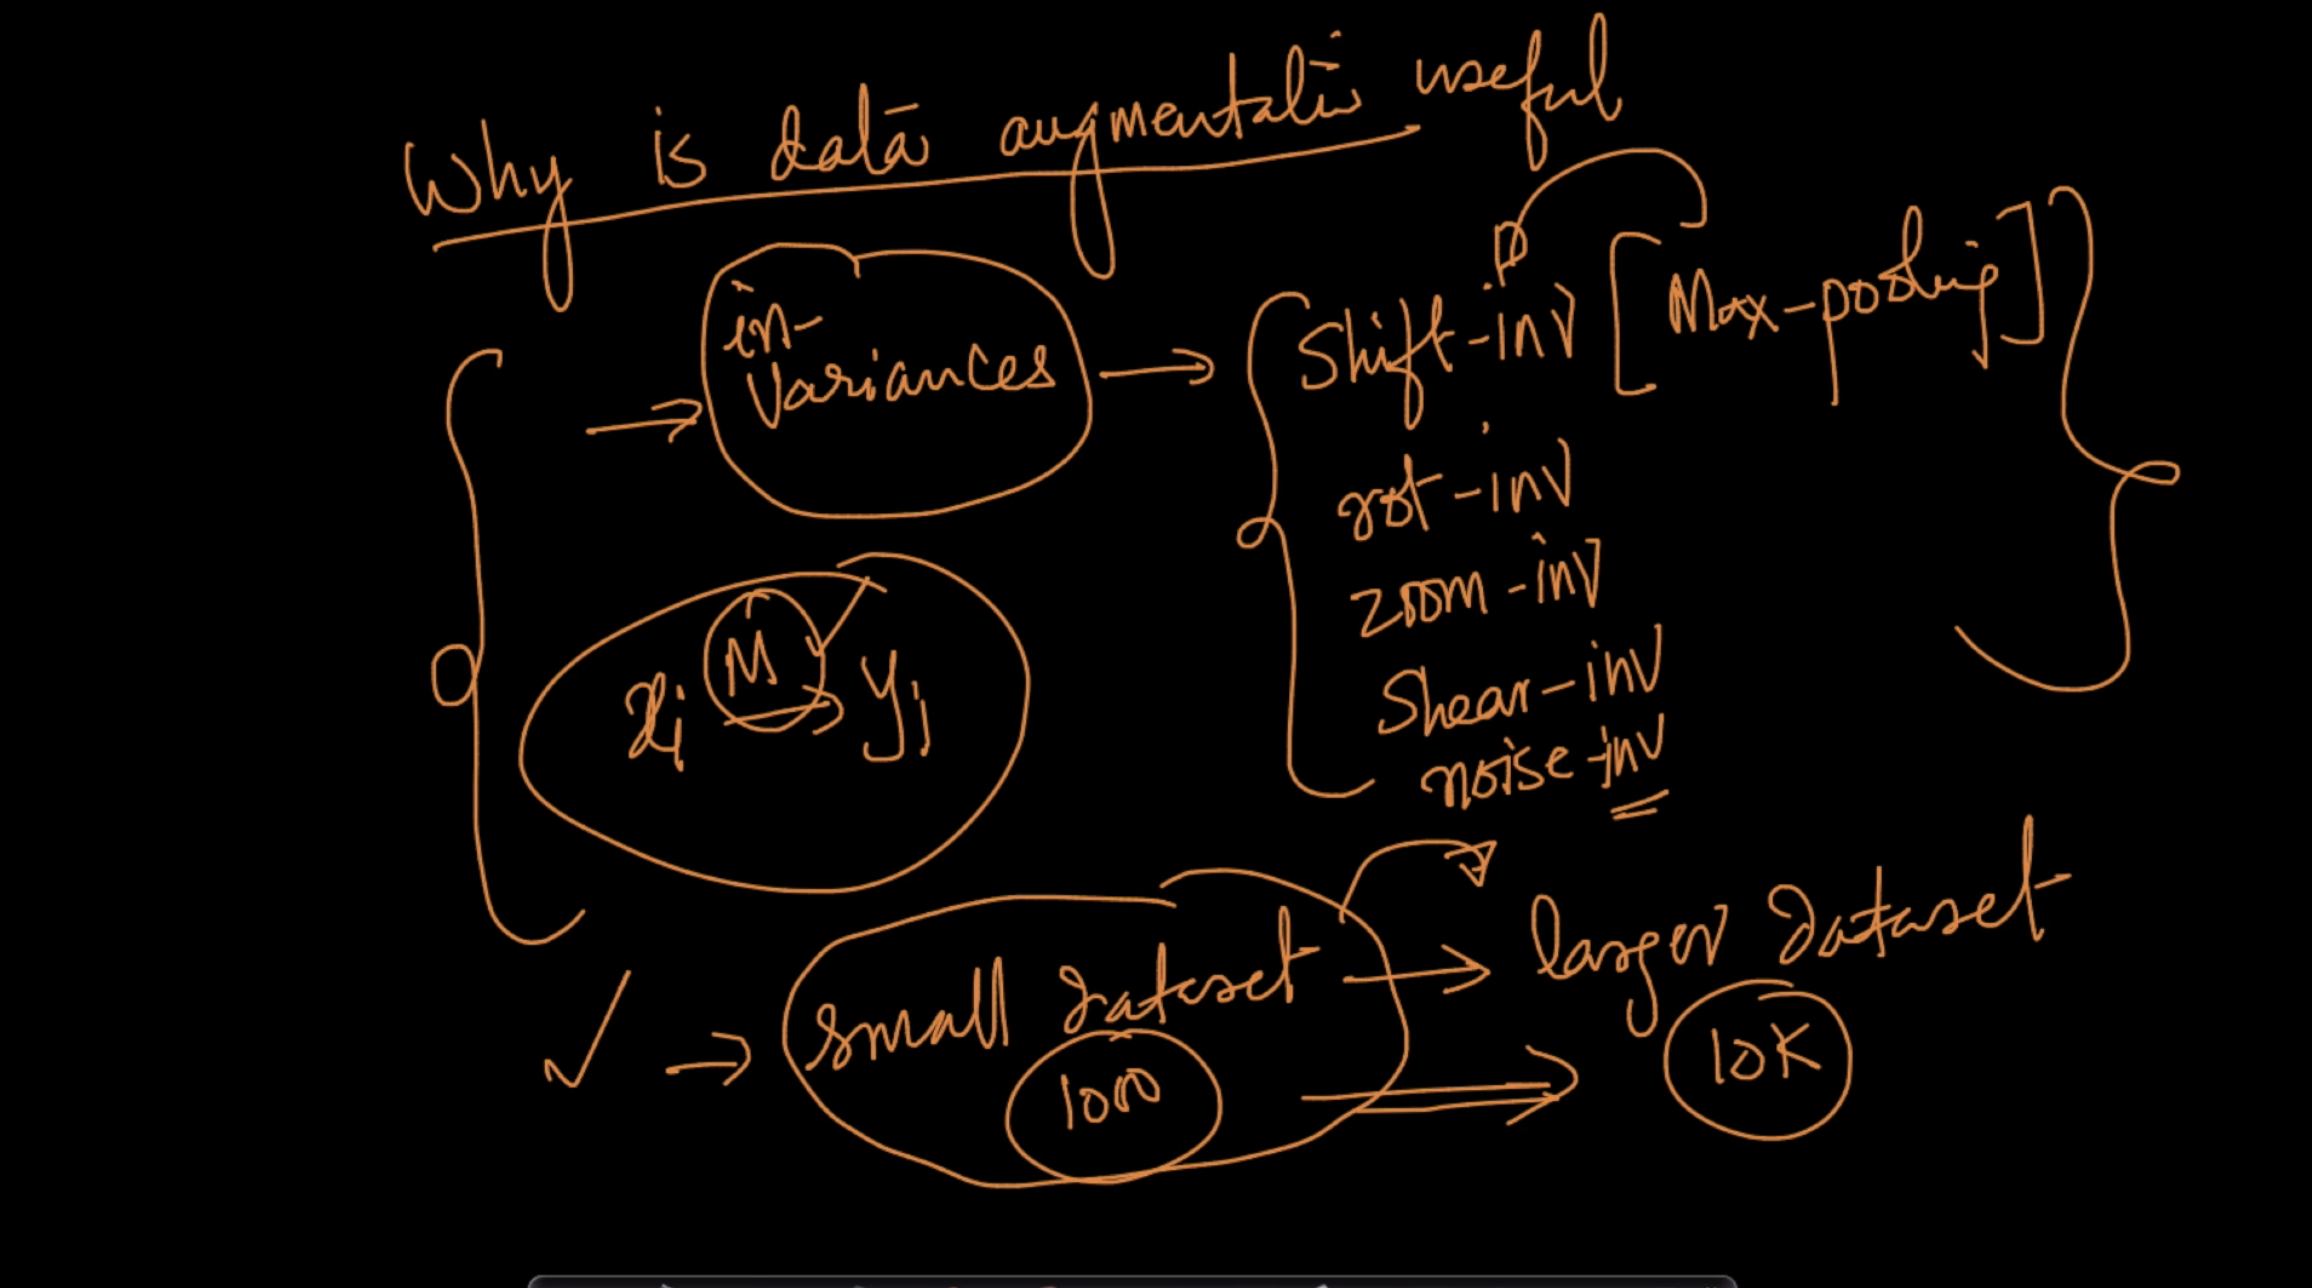 Why is data augmentation useful
in-
variances → Shift-inv [Max-pooling]
rot-inv
zoom-inv
Shear-inv
noise-inv
xi M → yi
✓ → small dataset → larger dataset
1000 ⇒ 10K